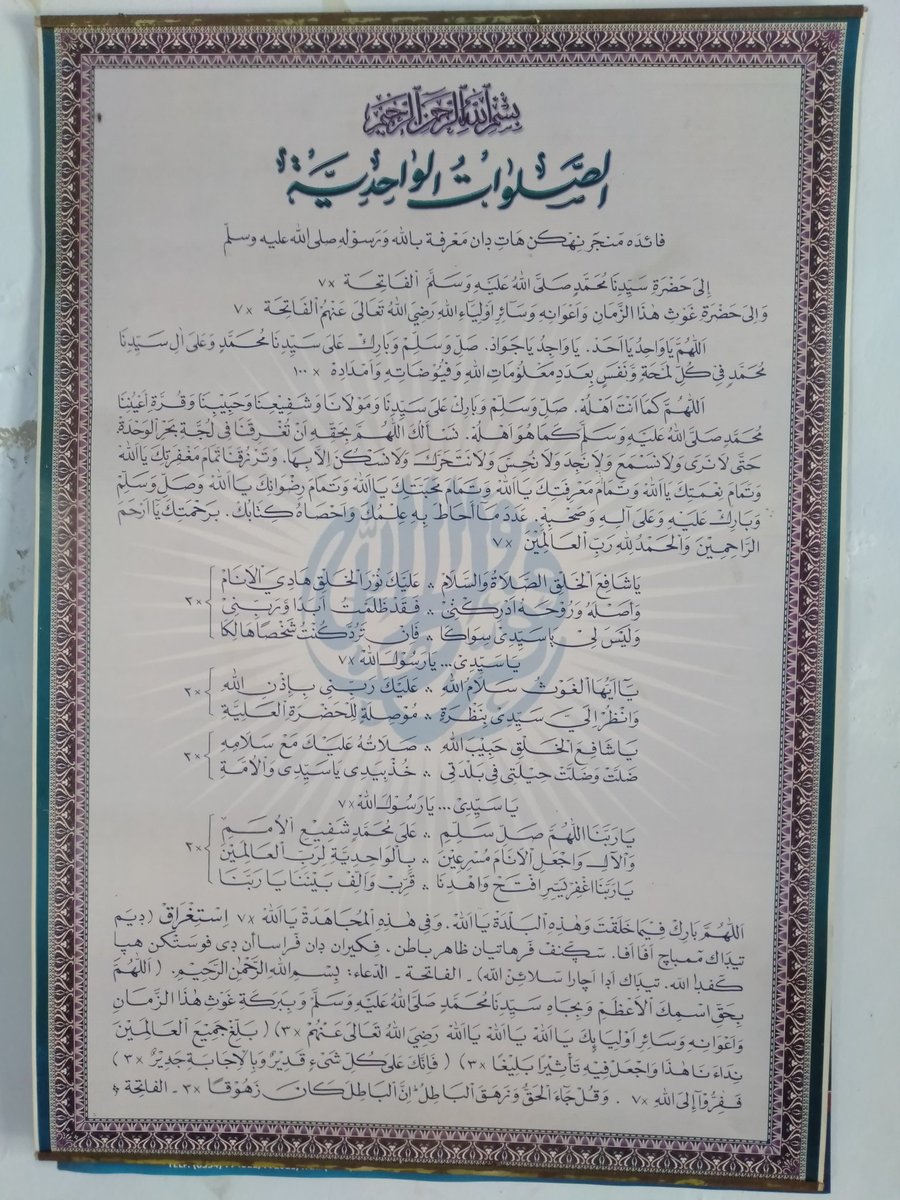 بِسْمِ اللهِ الرَّحْمٰنِ الرَّحِيْمِ
الصَّلَوَاتُ الْوَاحِدِيَّةُ
فائده منجرنيهكن هات دان معرفة بالله وَرَسُوْلِهِ صلى الله عليه وسلم
إِلَى حَضْرَةِ سَيِّدِنَا مُحَمَّدٍ صَلَّى اللهُ عَلَيْهِ وَسَلَّمَ الْفَاتِحَةْ ×٧
وَإِلَى حَضْرَةِ غَوْثِ هٰذَا الزَّمَانِ وَأَعْوَانِهِ وَسَائِرِ أَوْلِيَاءِ اللهِ رَضِيَ اللهُ تَعَالَى عَنْهُمُ الْفَاتِحَةْ ×٧
اَللّٰهُمَّ يَا وَاحِدُ يَا أَحَدْ. يَا وَاجِدُ يَا جَوَادْ. صَلِّ وَسَلِّمْ وَبَارِكْ عَلَى سَيِّدِنَا مُحَمَّدٍ وَعَلَى اٰلِ سَيِّدِنَا
مُحَمَّدٍ فِيْ كُلِّ لَمْحَةٍ وَّنَفَسٍ بِعَدَدِ مَعْلُوْمَاتِ اللهِ وَفُيُوْضَاتِهِ وَأَمْدَادِهْ ×١٠٠
اَللّٰهُمَّ كَمَا أَنْتَ أَهْلُهْ. صَلِّ وَسَلِّمْ وَبَارِكْ عَلَى سَيِّدِنَا وَمَوْلَانَا وَشَفِيْعِنَا وَحَبِيْبِنَا وَقُرَّةِ أَعْيُنِنَا
مُحَمَّدٍ صَلَّى اللهُ عَلَيْهِ وَسَلَّمَ كَمَا هُوَ أَهْلُهْ. نَسْأَلُكَ اللّٰهُمَّ بِحَقِّهِ أَنْ تُغْرِقَنَا فِيْ لُجَّةِ بَحْرِ الْوَحْدَةْ.
حَتَّى لَا نَرَى وَلَا نَسْمَعَ وَلَا نَجِدَ وَلَا نُحِسَّ وَلَا نَتَحَرَّكَ وَلَا نَسْكُنَ إِلَّا بِهَا. وَتَرْزُقَنَا تَمَامَ مَغْفِرَتِكَ يَا اَللهْ
وَتَمَامَ نِعْمَتِكَ يَا اَللهْ وَتَمَامَ مَعْرِفَتِكَ يَا اَللهْ وَتَمَامَ مَحَبَّتِكَ يَا اَللهْ وَتَمَامَ رِضْوَانِكَ يَا اَللهْ وَصَلِّ وَسَلِّمْ
وَبَارِكْ عَلَيْهِ وَعَلَى اٰلِهِ وَصَحْبِهْ. عَدَدَ مَا أَحَاطَ بِهِ عِلْمُكَ وَأَحْصَاهُ كِتَابُكْ. بِرَحْمَتِكَ يَا أَرْحَمَ
الرَّاحِمِيْنَ وَالْحَمْدُ لِلّٰهِ رَبِّ الْعَالَمِيْنَ ×٧
يَا شَافِعَ الْخَلْقِ الصَّلَاةُ وَالسَّلَامْ ❖ عَلَيْكَ نُوْرَ الْخَلْقِ هَادِيَ الْأَنَامْ
وَأَصْلَهُ وَرُوْحَهُ أَدْرِكْنِيْ ❖ فَقَدْ ظَلَمْتُ أَبَدًا وَّرَبِّنِيْ
وَلَيْسَ لِيْ يَا سَيِّدِيْ سِوَاكَا ❖ فَإِنْ تَرُدَّ كُنْتُ شَخْصًا هَالِكَا
×٣
يَا سَيِّدِيْ... يَا رَسُوْلَ اللهْ ×٧
يَآ أَيُّهَا الْغَوْثُ سَلَامُ اللهْ ❖ عَلَيْكَ رَبِّنِيْ بِإِذْنِ اللهْ
وَانْظُرْ إِلَيَّ سَيِّدِيْ بِنَظْرَةْ ❖ مُوْصِلَةٍ لِّلْحَضْرَةِ الْعَلِيَّةْ
×٣
يَا شَافِعَ الْخَلْقِ حَبِيْبَ اللهْ ❖ صَلَاتُهُ عَلَيْكَ مَعْ سَلَامِهْ
ضَلَّتْ وَضَلَّتْ حِيْلَتِيْ فِيْ بَلْدَتِيْ ❖ خُذْ بِيَدِيْ يَا سَيِّدِيْ وَالْأُمَّةِ
×٣
يَا سَيِّدِيْ... يَا رَسُوْلَ اللهْ ×٧
يَا رَبَّنَا اللّٰهُمَّ صَلِّ سَلِّمِ ❖ عَلَى مُحَمَّدٍ شَفِيْعِ الْأُمَمِ
وَالْاٰلِ وَاجْعَلِ الْأَنَامَ مُسْرِعِيْنْ ❖ بِالْوَاحِدِيَّةِ لِرَبِّ الْعَالَمِيْنْ
يَا رَبَّنَا اغْفِرْ يَسِّرِ افْتَحْ وَاهْدِنَا ❖ قَرِّبْ وَأَلِّفْ بَيْنَنَا يَا رَبَّنَا
×٣
اَللّٰهُمَّ بَارِكْ فِيْمَا خَلَقْتَ وَهٰذِهِ الْبَلْدَةْ يَا اَللهْ. وَفِيْ هٰذِهِ الْمُجَاهَدَةْ يَا اَللهْ ×٧ إِسْتِغْرَاقْ (ديم
تيداك ممباچ اڤا اڤا. سڬنڤ ڤرهاتيان ظاهر باطن، فكيران دان ڤراساأن دي ڤوستكن هيا
كڤدا الله. تيداك ادا اچارا سلائن الله) - الفاتحة - الدعاء: بِسْمِ اللهِ الرَّحْمٰنِ الرَّحِيْمِ. (اَللّٰهُمَّ
بِحَقِّ اسْمِكَ الْأَعْظَمْ وَبِجَاهِ سَيِّدِنَا مُحَمَّدٍ صَلَّى اللهُ عَلَيْهِ وَسَلَّمْ وَبِبَرَكَةِ غَوْثِ هٰذَا الزَّمَانِ
وَأَعْوَانِهِ وَسَائِرِ أَوْلِيَائِكَ يَا اَللهْ يَا اَللهْ يَا اَللهْ رَضِيَ اللهُ تَعَالَى عَنْهُمْ ×٣) (بَلِّغْ جَمِيْعَ الْعَالَمِيْنَ
نِدَاءَنَا هٰذَا وَاجْعَلْ فِيْهِ تَأْثِيْرًا بَلِيْغًا ×٣) (فَإِنَّكَ عَلَى كُلِّ شَيْءٍ قَدِيْرٌ وَبِالْإِجَابَةِ جَدِيْرٌ ×٣)
فَفِرُّوْآ إِلَى اللهِ ×٧. وَقُلْ جَآءَ الْحَقُّ وَزَهَقَ الْبَاطِلُ إِنَّ الْبَاطِلَ كَانَ زَهُوْقًا ×٣ - الفاتحة